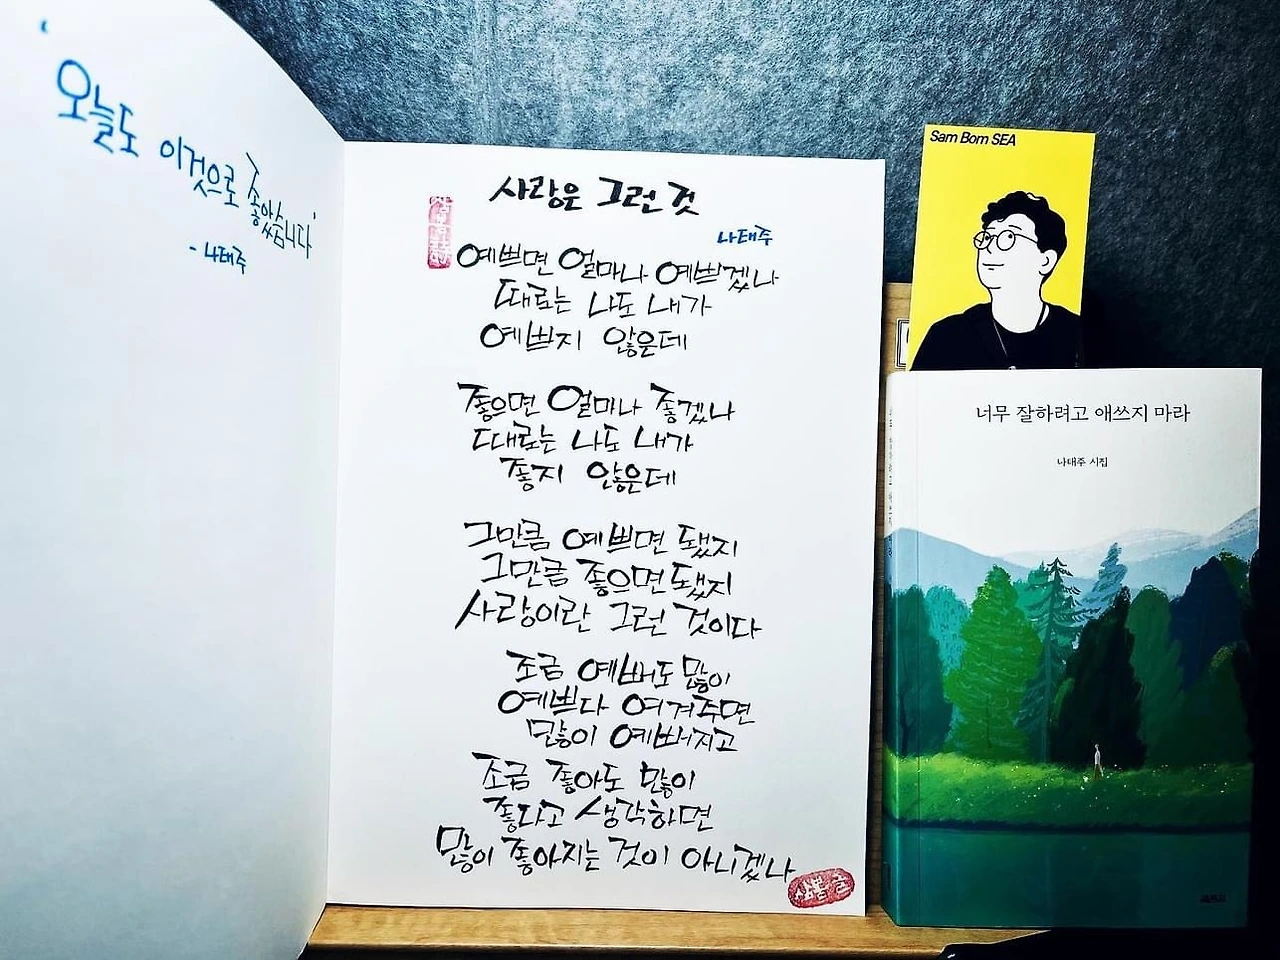 '오늘도 이것으로 좋았습니다'
- 나태주
사랑은 그런 것
나태주
예쁘면 얼마나 예쁘겠나
때로는 나도 내가
예쁘지 않은데
좋으면 얼마나 좋겠나
때로는 나도 내가
좋지 않은데
그만큼 예쁘면 됐지
그만큼 좋으면 됐지
사랑이란 그런 것이다
조금 예뻐도 많이
예쁘다 여겨주면
많이 예뻐지고
조금 좋아도 많이
좋다고 생각하면
많이 좋아지는 것이 아니겠나
Sam Bom SEA
너무 잘하려고 애쓰지 마라
나태주 시집